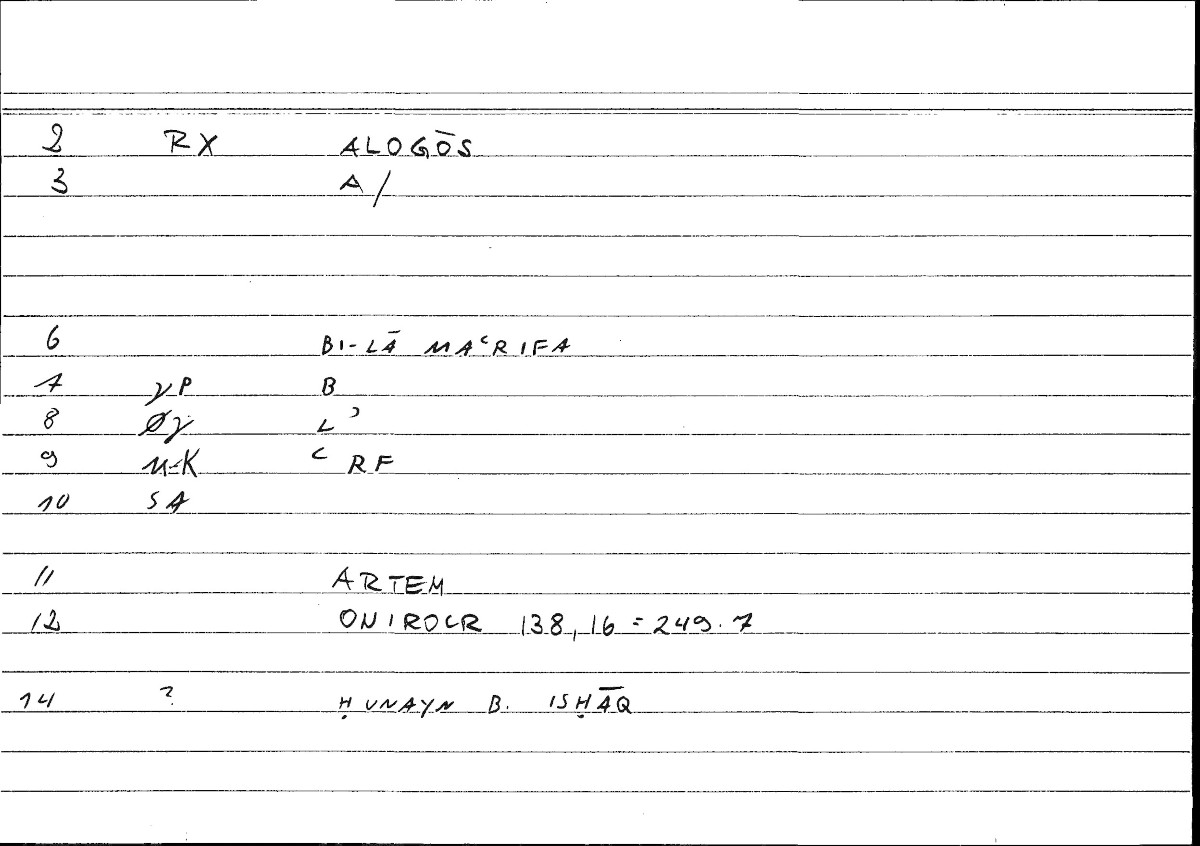 2 RX ALOGŌS
3 A/
6 BI-LĀ MAʿRIFA
7 γP B
8 Øγ Lʾ
9 M-K ʿRF
10 SA
11 ARTEM
12 ONIROCR 138,16 = 249.7
14 ? ḤUNAYN B. ISḤĀQ